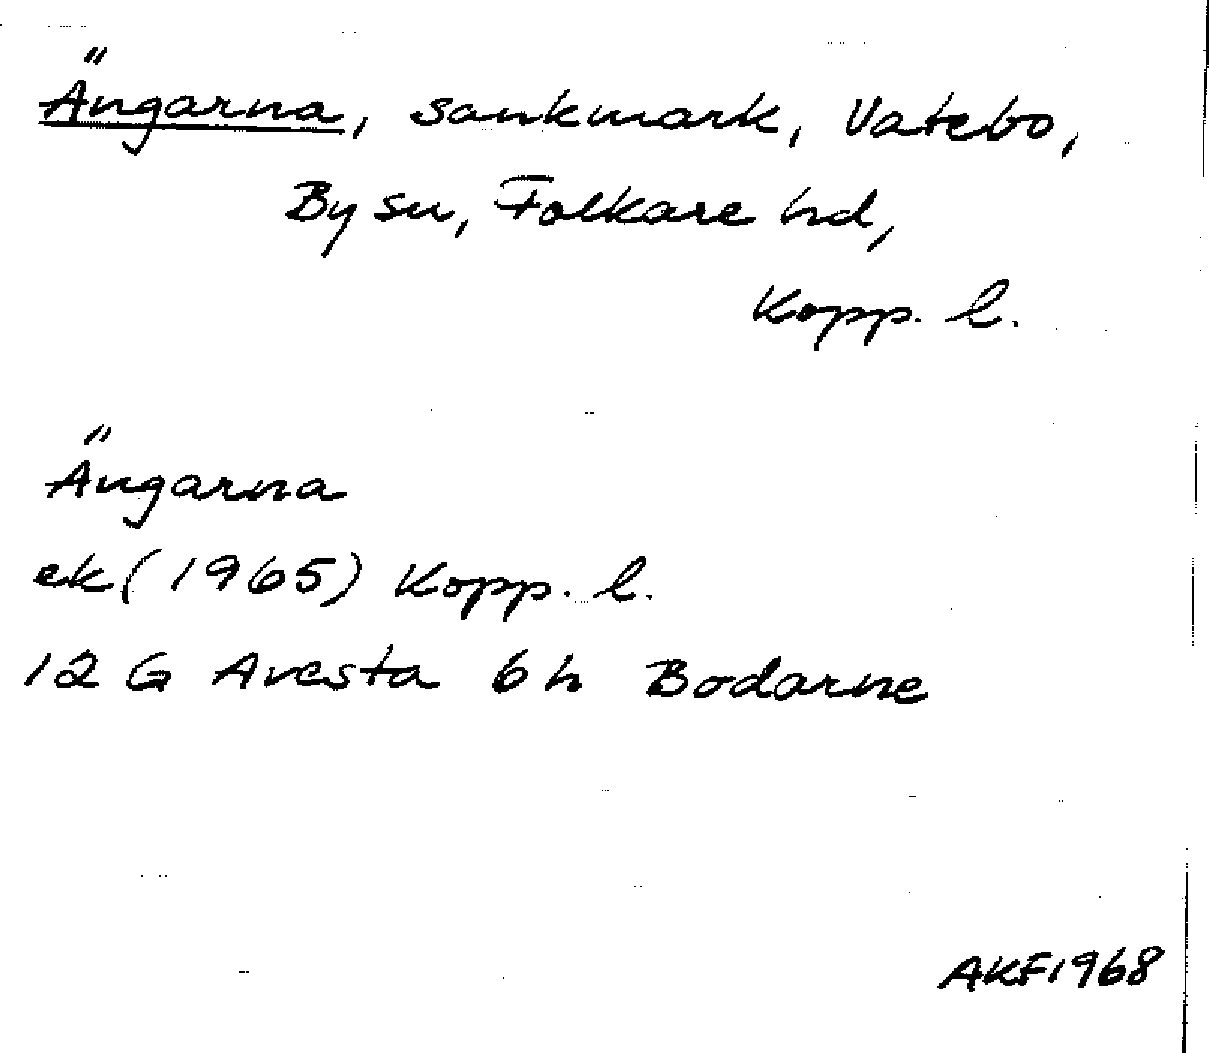 Ängarna, sankmark, Vatebo,
By sn, Folkare hd,
Kopp. l.
Ängarna
ek (1965) Kopp. l.
12 G Avesta 6 h Bodarne
AKF1968